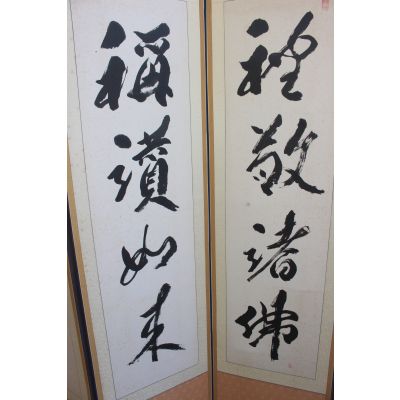 禮敬諸佛
稱讚如來